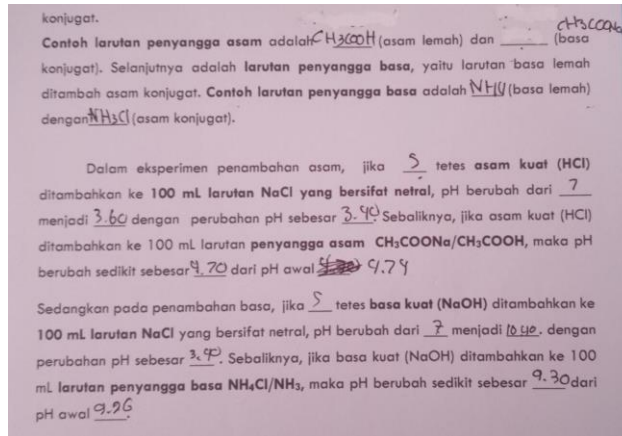 konjugat.
CH3COONa
Contoh larutan penyangga asam adalah CH3COOH (asam lemah) dan ______ (basa
konjugat). Selanjutnya adalah larutan penyangga basa, yaitu larutan basa lemah
ditambah asam konjugat. Contoh larutan penyangga basa adalah NH4 (basa lemah)
dengan NH3Cl (asam konjugat).
Dalam eksperimen penambahan asam, jika 5 tetes asam kuat (HCl)
ditambahkan ke 100 mL larutan NaCl yang bersifat netral, pH berubah dari 7
menjadi 3.60 dengan perubahan pH sebesar 3.40. Sebaliknya, jika asam kuat (HCl)
ditambahkan ke 100 mL larutan penyangga asam CH₃COONa/CH₃COOH, maka pH
berubah sedikit sebesar 4.70 dari pH awal 4.74
Sedangkan pada penambahan basa, jika 5 tetes basa kuat (NaOH) ditambahkan ke
100 mL larutan NaCl yang bersifat netral, pH berubah dari 7 menjadi 10.40. dengan
perubahan pH sebesar 3.40. Sebaliknya, jika basa kuat (NaOH) ditambahkan ke 100
mL larutan penyangga basa NH₄Cl/NH₃, maka pH berubah sedikit sebesar 9.30 dari
pH awal 9.26.